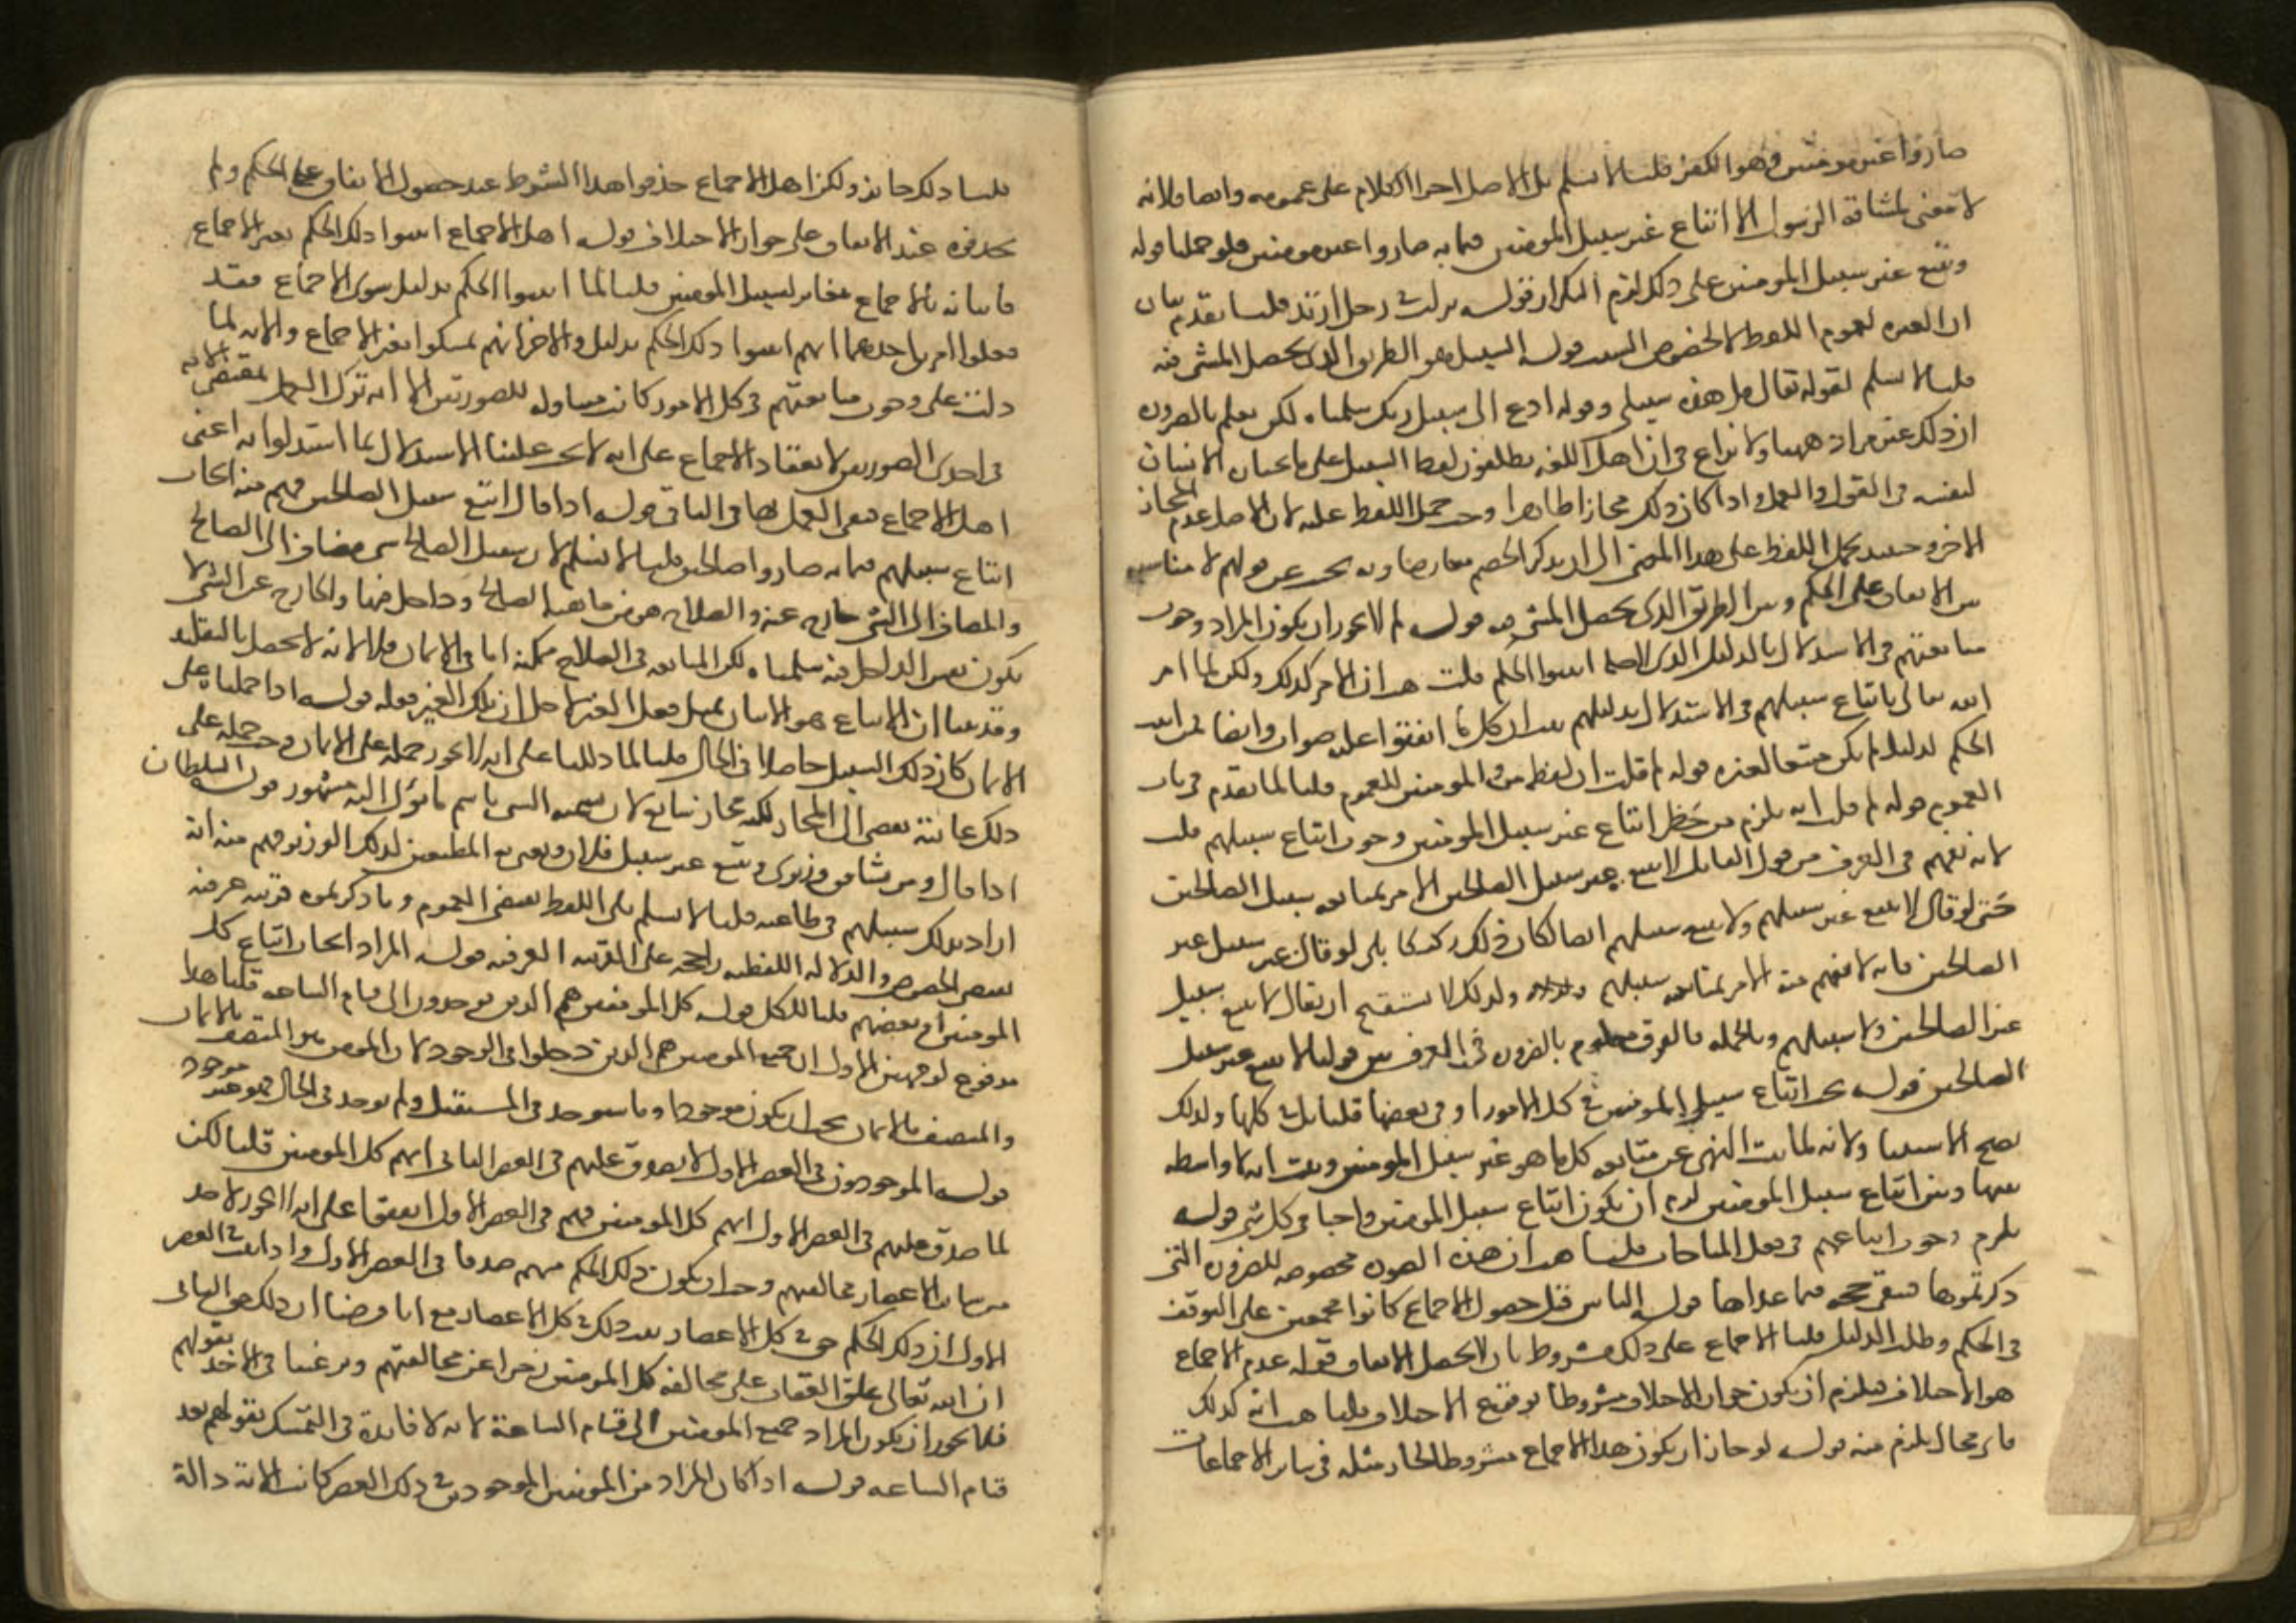 صاروا غير مومنين وهو الكفر قلنا لا نسلم بل الاصل اجرا الكلام على عمومه وايضا فلانه
لا معنى لمشاقة الرسول الا اتباع غير سبيل المومنين فيما به صاروا غير مومنين فلو حملنا قوله
ويتبع غير سبيل المومنين على ذلك لزم التكرار قوله نزلت في رجل ارتد قلنا تقدم بيان
ان العبرة لعموم اللفظ لا لخصوص السبب قوله السبيل هو الطريق الذي يحصل المشي فيه
قلنا لا نسلم لقوله تعالى قل هذه سبيلي وقوله ادع الى سبيل ربك سلمناه لكن نعلم بالضرورة
ان ذلك غير مراد ههنا ولا نزاع في ان اهل اللغة يطلقون لفظ السبيل على ما يختار الانسان
لنفسه في القول والعمل واذا كان ذلك مجازا ظاهرا وجب حمل اللفظ عليه لان الاصل عدم المجاز
الاخر وحينئذ يحمل اللفظ على هذا المعنى الى ان يذكر الخصم معارضا وبه نجيب عن قولهم لا مناسبة
بين الاتفاق على الحكم وبين الطريق الذي يحصل المشي فيه قوله لم لا يجوز ان يكون المراد وجوب
متابعتهم في الاستدلال بالدليل الذي لاجله اثبتوا الحكم قلت هب ان الامر كذلك ولكن لما امر
الله تعالى باتباع سبيلهم في الاستدلال بدليلهم ثبت ان كل ما اتفقوا عليه صواب وايضا فمن اثبت
الحكم لدليل لم يكن متبعا لغيره قوله لم قلت ان لفظ من والمومنين للعموم قلنا لما تقدم في باب
العموم قوله لم قلت انه يلزم من حظر اتباع غير سبيل المومنين وجوب اتباع سبيلهم قلت
لانه يفهم في العرف من قول القائل لا تتبع غير سبيل الصالحين الامر بمتابعة سبيل الصالحين
حتى لو قال لا تتبع غير سبيلهم ولا تتبع سبيلهم ايضا لكان ذلك ركيكا بلى لو قال غير سبيل غير
الصالحين فانه لا يفهم منه الامر بمتابعة سبيلهم ولذلك لا يستقبح ان يقال لا تتبع سبيل
غير الصالحين ولا سبيلهم وبالجملة فالفرق معلوم بالضرورة في العرف بين قولنا لا تتبع غير سبيل
الصالحين قوله يجب اتباع سبيل المومنين في كل الامور او في بعضها قلنا بل في كلها ولذلك
يصح الاستثنا ولانه لما ثبت النهي عن متابعة كل ما هو غير سبيل المومنين وثبت انه لا واسطه
بينها وبين اتباع سبيل المومنين لزم ان يكون اتباع سبيل المومنين واجبا في كل شي قوله
يلزم وجوب اتباعهم في فعل المباحات قلنا هب ان هذه الصورة مخصوصة للضرورة التي
ذكرتموها فتبقى حجه فيما عداها قوله الناس قبل حصول الاجماع كانوا مجمعين على التوقف
في الحكم وطلب الدليل قلنا الاجماع على ذلك مشروط بان لا يحصل الاتفاق قوله عدم الاجماع
هو الاختلاف فيلزم ان يكون جواز الاختلاف مشروطا بوقوع الاختلاف قلنا هب انه كذلك
فاي محال يلزم منه قوله لو جاز ان يكون هذا الاجماع مشروطا لجاز مثله في ساير الاجماعات
قلنا ذلك جايز ولكن اهل الاجماع حذفوا هذا الشرط عند حصول الاتفاق على الحكم ولم
يحذفوه عند الاتفاق على جواز الاختلاف قوله اهل الاجماع اثبتوا ذلك الحكم بغير الاجماع
فاثباته بالاجماع مغاير لسبيل المومنين قلنا لما اثبتوا الحكم بدليل سوى الاجماع فقد
فعلوا امرين احدهما انهم اثبتوا ذلك الحكم بدليل والاخر انهم تمسكوا بغير الاجماع والاية لما
دلت على وجوب متابعتهم في كل الامور كانت متناولة للصورتين الا انه ترك العمل بمقتضى الاية
في احدى الصورتين لانعقاد الاجماع على انه لا يجب علينا الاستدلال بما استدلوا به اعني
اهل الاجماع فبقي العمل بها في الباقي قوله اذا قال اتبع سبيل الصالحين فهم منه ايجاب
اتباع سبيلهم فيما به صاروا صالحين قلنا لا نسلم لان سبيل الصالح شي مضاف الى الصالح
والمضاف الى الشي خارج عنه والصلاح جزء من ماهية الصالح وداخل فيها والخارج عن الشي لا
يكون نفس الداخل فيه سلمناه لكن المتابعة في الصلاح ممكنة اما في الايمان فلا لانه لا يحصل بالتقليد
وقد بينا ان الاتباع هو الاتيان بمثل فعل الغير لاجل ان ذلك الغير فعله قوله اذا حملناه على
الايمان كان ذلك السبيل حاصلا في الحال قلنا لما دللنا على انه لا يجوز حمله على الايمان وجب حمله على
ذلك غايته يفضي الى المجاز لكنه مجاز شايع لان تسمية الشي باسم ما يؤل اليه مشهور قوله السلطان
اذا قال ومن يشاقق وزيري ويتبع غير سبيل فلان ويعني به المطيعين لذلك الوزير فهم منه انه
اراد بذلك سبيلهم في طاعته قلنا لا نسلم بلى اللفظ يقتضي العموم وما ذكرتموه قرينة عرفية
تقتضي الخصوص والدلالة اللفظية راجحة على القرينة العرفية قوله المراد ايجاب اتباع كل
المومنين او بعضهم قلنا للكل قوله كل المومنين هم الذين يوجدون الى قيام الساعة قلنا هذا
مدفوع لوجهين الاول ان جميع المومنين هم الذين دخلوا في الوجود لان المومن هو المتصف بالايمان
والمتصف بالايمان يجب ان يكون موجودا وما سيوجد في المستقبل ولم يوجد في الحال فهو غير موجود
قوله الموجودون في العصر الاول لا يصدق عليهم في العصر الثاني انهم كل المومنين قلنا لكن
لما صدق عليهم في العصر الاول انهم كل المومنين فهم في العصر الاول اتفقوا على انه لا يجوز لاحد
من ساير الاعصار مخالفتهم وجب ان يكون ذلك الحكم منهم صدقا في العصر الاول واذا ثبت في العصر
الاول ان ذلك الحكم حق في كل الاعصار ثبت ذلك في كل الاعصار مع انا فرضنا ان ذلك هو الثاني
ان الله تعالى علق العقاب على مخالفة كل المومنين زجرا عن مخالفتهم وترغيبا في الاخذ بقولهم
فلا يجوز ان يكون المراد جميع المومنين الى قيام الساعة لانه لا فائدة في التمسك بقولهم بعد
قيام الساعه قوله اذا كان المراد من المومنين الموجودين في ذلك العصر كانت الاية دالة